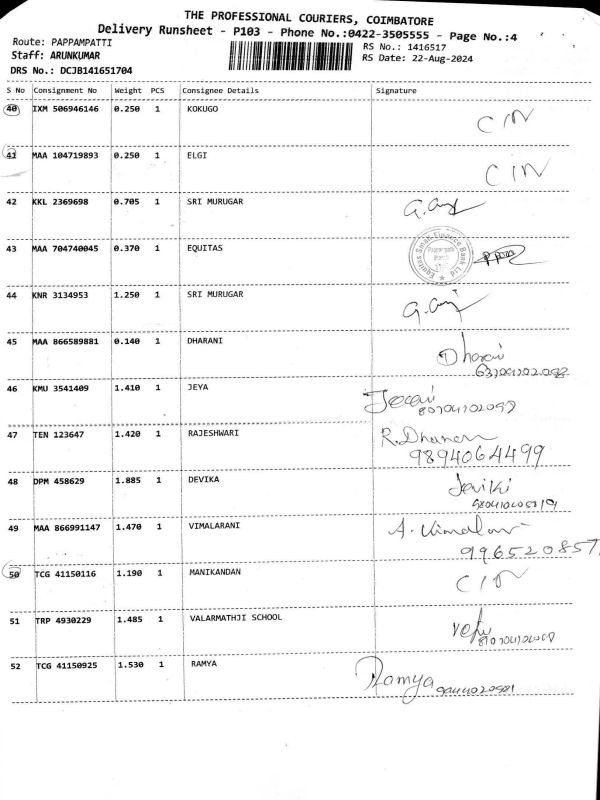 THE PROFESSIONAL COURIERS, COIMBATORE
Delivery Runsheet - P103 - Phone No.:0422-3505555 - Page No.:4
Route: PAPPAMPATTI RS No.: 1416517
Staff: ARUNKUMAR RS Date: 22-Aug-2024
DRS No.: DCJB141651704
S No Consignment No Weight PCS Consignee Details Signature
40 IXM 506946146 0.250 1 KOKUGO CIN
41 MAA 104719893 0.250 1 ELGI CIN
42 KKL 2369698 0.705 1 SRI MURUGAR
43 MAA 704740045 0.370 1 EQUITAS Equitas Small Finance Bank Ltd
44 KNR 3134953 1.250 1 SRI MURUGAR
45 MAA 866589881 0.140 1 DHARANI Dharani
46 KMU 3541409 1.410 1 JEYA
47 TEN 123647 1.420 1 RAJESHWARI R.Dhanam
9894064499
48 DPM 458629 1.885 1 DEVIKA
49 MAA 866991147 1.470 1 VIMALARANI A. Vimala
996520857
50 TCG 41150116 1.190 1 MANIKANDAN CIN
51 TRP 4930229 1.485 1 VALARMATHJI SCHOOL
52 TCG 41150925 1.530 1 RAMYA Ramya